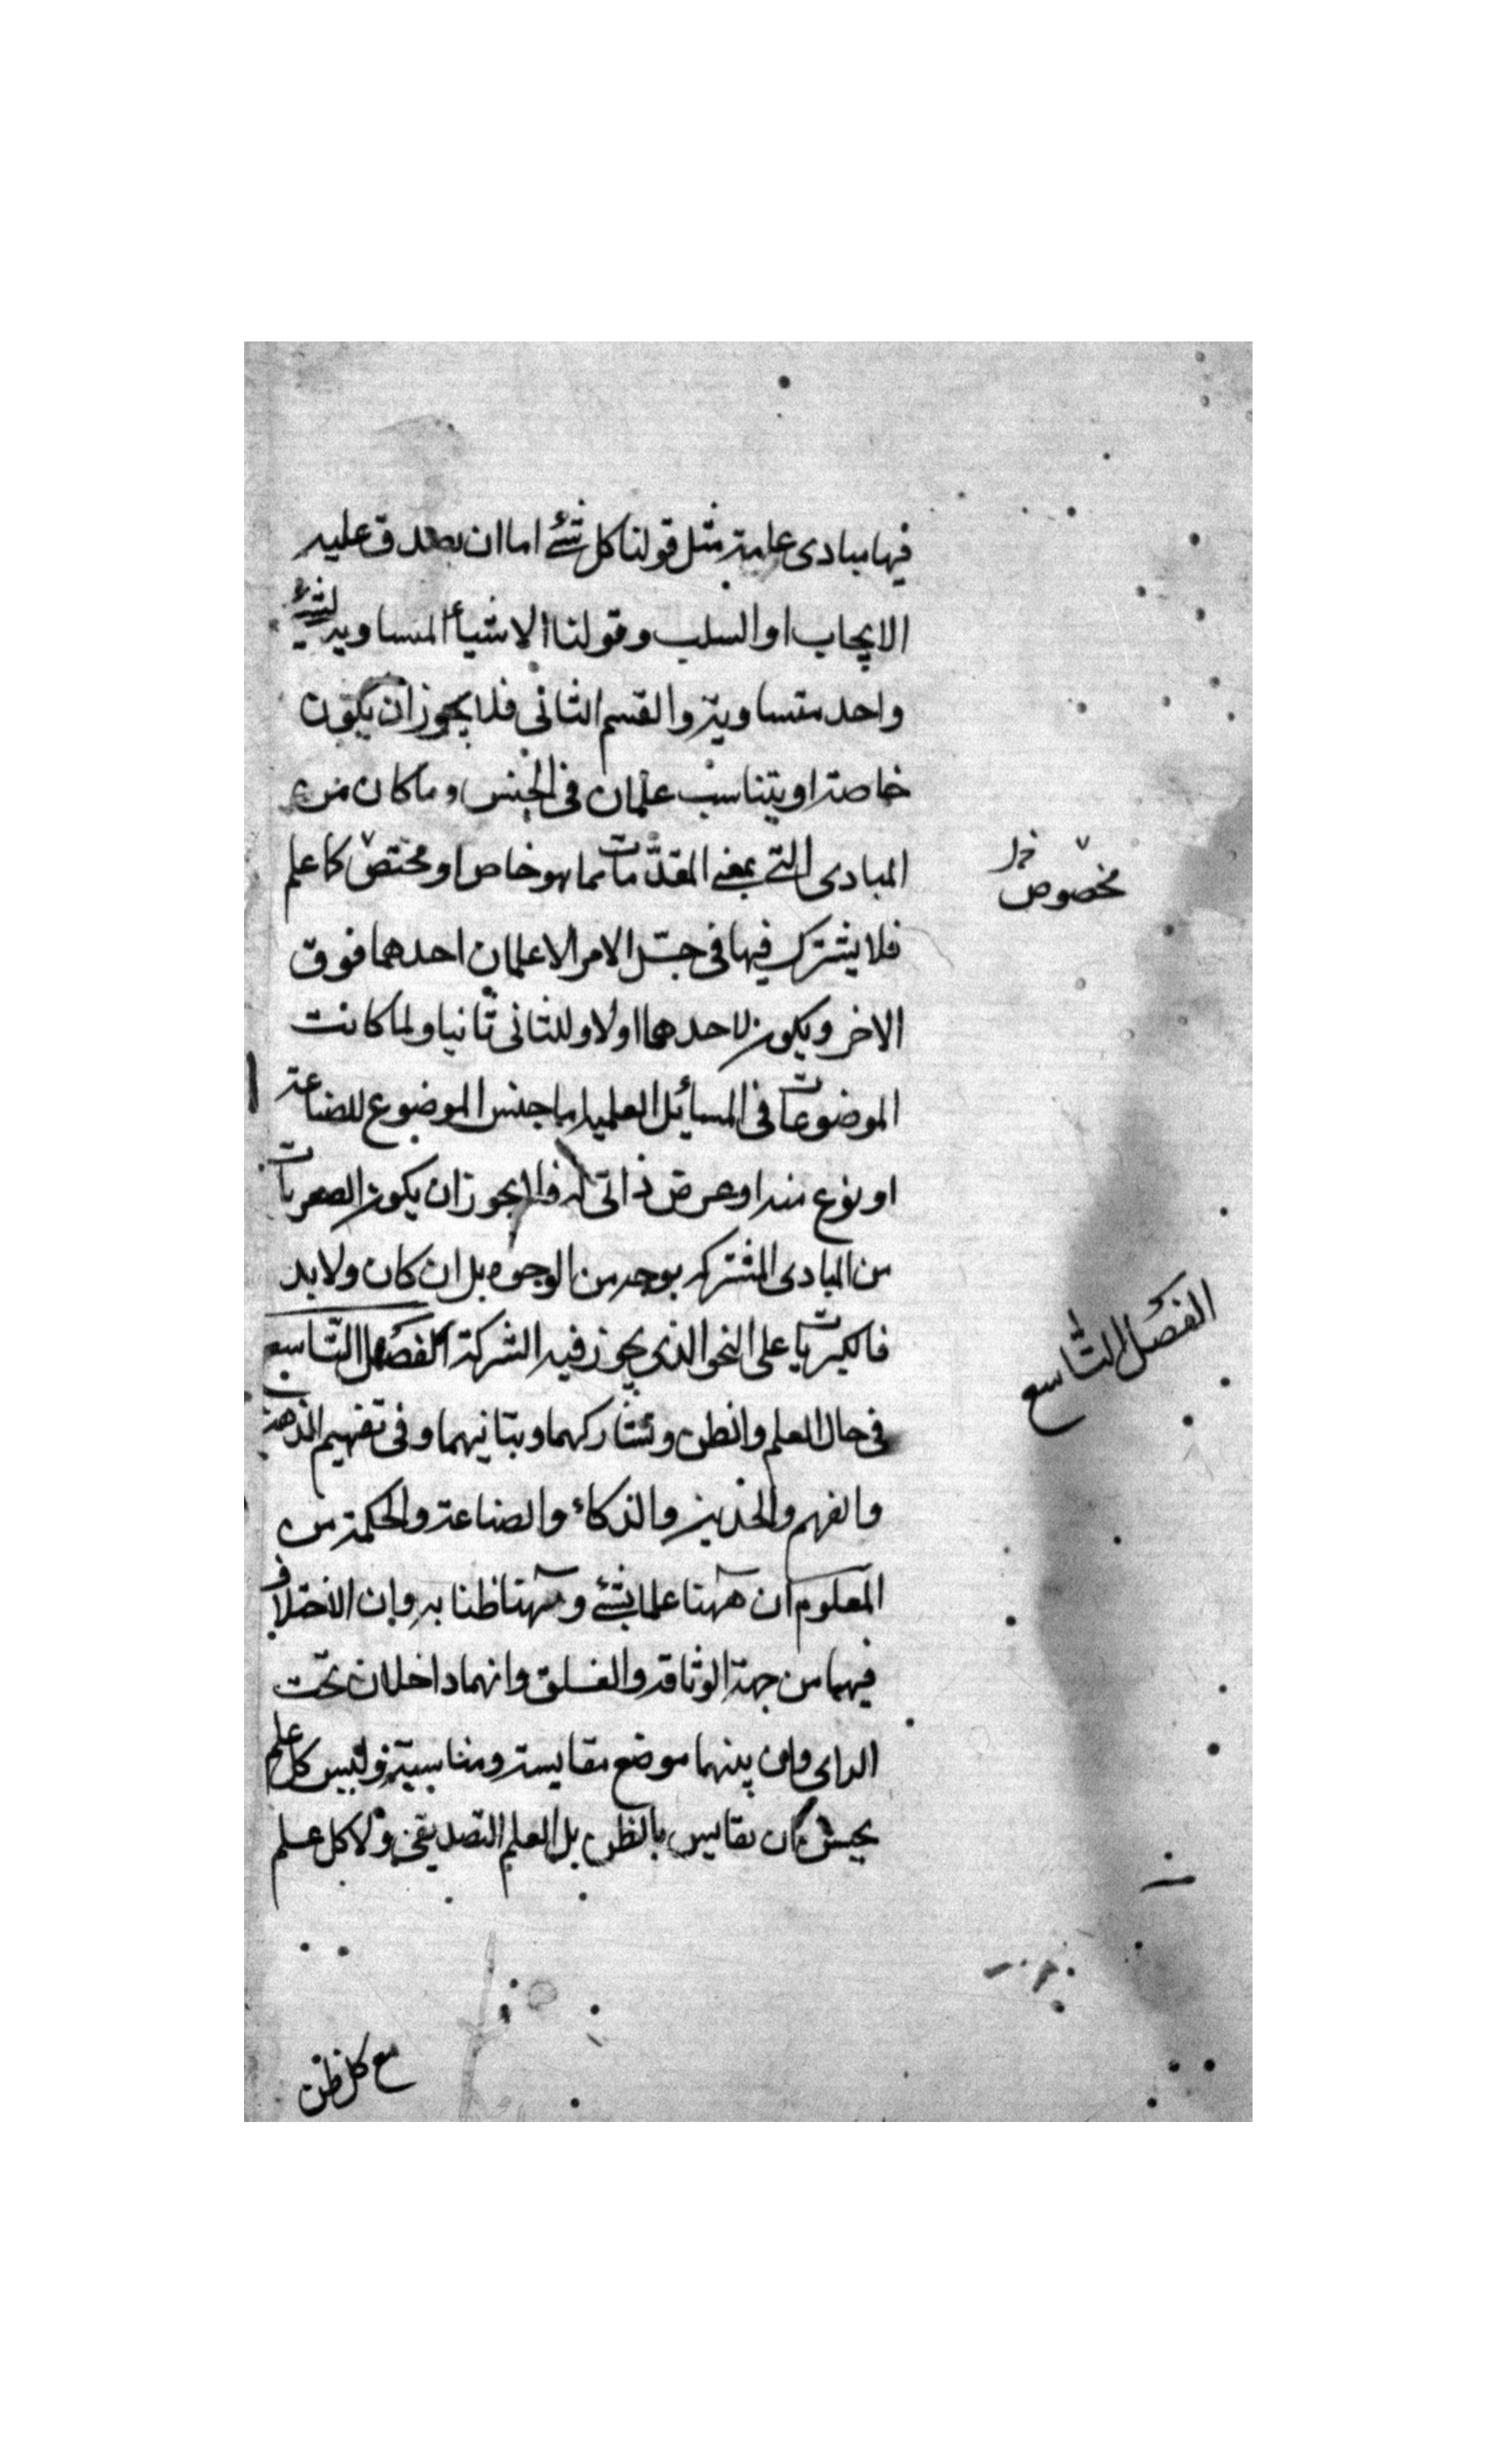 فيها مبادى عامة مثل قولنا كل شئ اما ان يصدق عليه
الايجاب او السلب وقولنا الاشياء المساوية لشئ
واحد متساوية والقسم الثانى فلا يجوز ان يكون
خاصة او يتناسب علمان فى الجنس وما كان من
المبادى التى بمعنى المقدمات مما هو خاص او مختص كا علم
مخصوص
فلا يشترك فيها فى جل الامر الا علمان احدهما فوق
الاخر ويكون لاحدهما اولا وللثانى ثانيا ولما كانت
الموضوعات فى المسائل العلمية اما جنس الموضوع للصناعة
او نوع منه او عرض ذاتى له فلا يجوز ان يكون الصغريات
من المبادى المشتركه بوجه من الوجوه بل ان كان ولا بد
فالكبريات على النحو الذى يجوز فيه الشركة الفصل التاسع
الفصل التاسع
فى حال العلم والظن وتشاركهما وتباينهما وفى تفهيم الذهن
والفهم والحدس والذكاء والصناعة والحكمة من
المعلوم ان ههنا علما بشئ وههنا ظنا به وان الاختلاف
فيهما من جهة الوثاقة والغلق وانهما داخلان تحت
الراى وان بينهما موضع مقايسة ومناسبة وليس كل علم
يقايس بالظن بل العلم التصديقى ولا كل علم
مع كل ظن